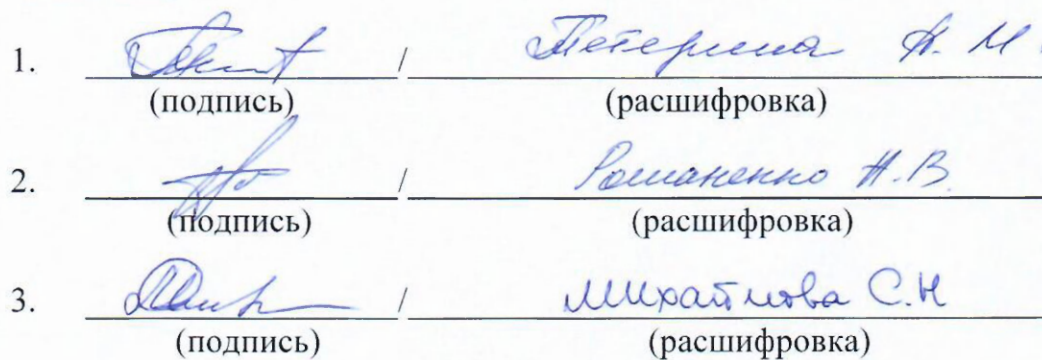 1. / Петерина Н. М.
(подпись) (расшифровка)
2. / Романенко Н.В.
(подпись) (расшифровка)
3. / Михайлова С.Н
(подпись) (расшифровка)